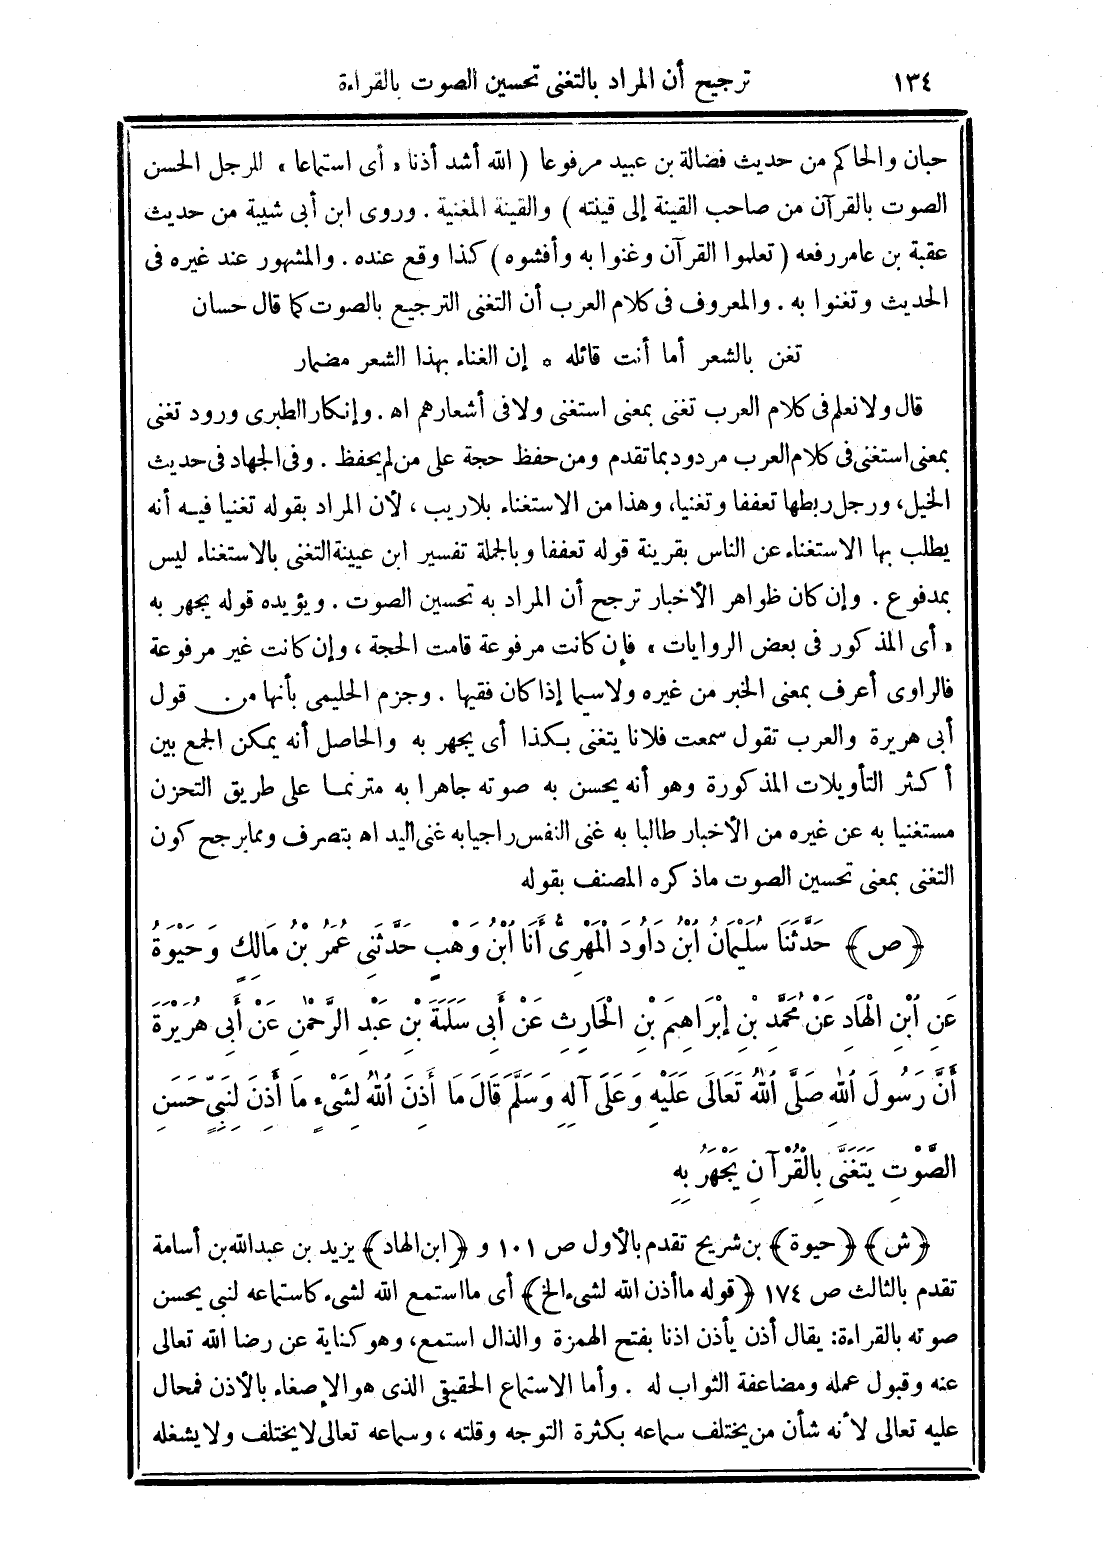 ١٣٤ ترجيح أن المراد بالتغنى تحسين الصوت بالقراءة
حبان والحاكم من حديث فضالة بن عبيد مرفوعا ( الله أشد أذنا «أى استماعا» للرجل الحسن
الصوت بالقرآن من صاحب القينة إلى قينته ) والقينة المغنية . وروى ابن أبى شيبة من حديث
عقبة بن عامر رفعه ( تعلموا القرآن وغنوا به وأفشوه ) كذا وقع عنده . والمشهور عند غيره فى
الحديث وتغنوا به . والمعروف فى كلام العرب أن التغنى الترجيع بالصوت كما قال حسان
تغن بالشعر أما أنت قائله * إن الغناء بهذا الشعر مضمار
قال ولا نعلم فى كلام العرب تغنى بمعنى استغنى ولا فى أشعارهم اه . وإنكار الطبرى ورود تغنى
بمعنى استغنى فى كلام العرب مردود بما تقدم ومن حفظ حجة على من لم يحفظ . وفى الجهاد فى حديث
الخيل، ورجل ربطها تعففا وتغنيا، وهذا من الاستغناء بلا ريب ، لأن المراد بقوله تغنيا فيه أنه
يطلب بها الاستغناء عن الناس بقرينة قوله تعففا وبالجملة تفسير ابن عيينة التغنى بالاستغناء ليس
بمدفوع . وإن كان ظواهر الأخبار ترجح أن المراد به تحسين الصوت . ويؤيده قوله يجهر به
«أى المذكور فى بعض الروايات» فإن كانت مرفوعة قامت الحجة ، وإن كانت غير مرفوعة
فالراوى أعرف بمعنى الخبر من غيره ولا سيما إذا كان فقيها . وجزم الحليمى بأنها من قول
أبى هريرة والعرب تقول سمعت فلانا يتغنى بكذا أى يجهر به والحاصل أنه يمكن الجمع بين
أكثر التأويلات المذكورة وهو أنه يحسن به صوته جاهرا به مترنما على طريق التحزن
مستغنيا به عن غيره من الأخبار طالبا به غنى النفس راجيا به غنى اليد اه بتصرف ومما يرجح كون
التغنى بمعنى تحسين الصوت ما ذكره المصنف بقوله
﴿ص﴾ حَدَّثَنَا سُلَيْمَانُ ابْنُ دَاوُدَ الْمَهْرِىُّ أَنَا ابْنُ وَهْبٍ حَدَّثَنِى عُمَرُ بْنُ مَالِكٍ وَحَيْوَةُ
عَنِ ابْنِ الْهَادِ عَنْ مُحَمَّدِ بْنِ إِبْرَاهِيمَ بْنِ الْحَارِثِ عَنْ أَبِى سَلَمَةَ بْنِ عَبْدِ الرَّحْمٰنِ عَنْ أَبِى هُرَيْرَةَ
أَنَّ رَسُولَ اللهِ صَلَّى اللهُ تَعَالَى عَلَيْهِ وَعَلَى آلِهِ وَسَلَّمَ قَالَ مَا أَذِنَ اللهُ لِشَىْءٍ مَا أَذِنَ لِنَبِىٍّ حَسَنِ
الصَّوْتِ يَتَغَنَّى بِالْقُرْآنِ يَجْهَرُ بِهِ
﴿ش﴾ ﴿حيوة﴾ بن شريح تقدم بالأول ص ١٠١ و ﴿ابن الهاد﴾ يزيد بن عبد الله بن أسامة
تقدم بالثالث ص ١٧٤ ﴿قوله ما أذن الله لشىء الخ﴾ أى ما استمع الله لشىء كاستماعه لنبى يحسن
صوته بالقراءة: يقال أذن يأذن اذنا بفتح الهمزة والذال استمع، وهو كناية عن رضا الله تعالى
عنه وقبول عمله ومضاعفة الثواب له . وأما الاستماع الحقيقى الذى هو الإصغاء بالأذن فمحال
عليه تعالى لأنه شأن من يختلف سماعه بكثرة التوجه وقلته ، وسماعه تعالى لا يختلف ولا يشغله